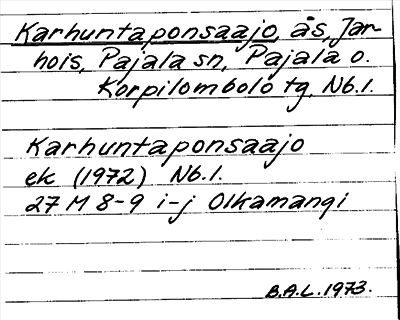 Karhuntaponsaajo, ås, Jar-
hois, Pajala sn, Pajala o.
Korpilombolo tg, Nb.l.
Karhuntaponsaajo
ek (1972) Nb.l.
27 M 8-9 i-j Olkamangi
B.A.L. 1973.